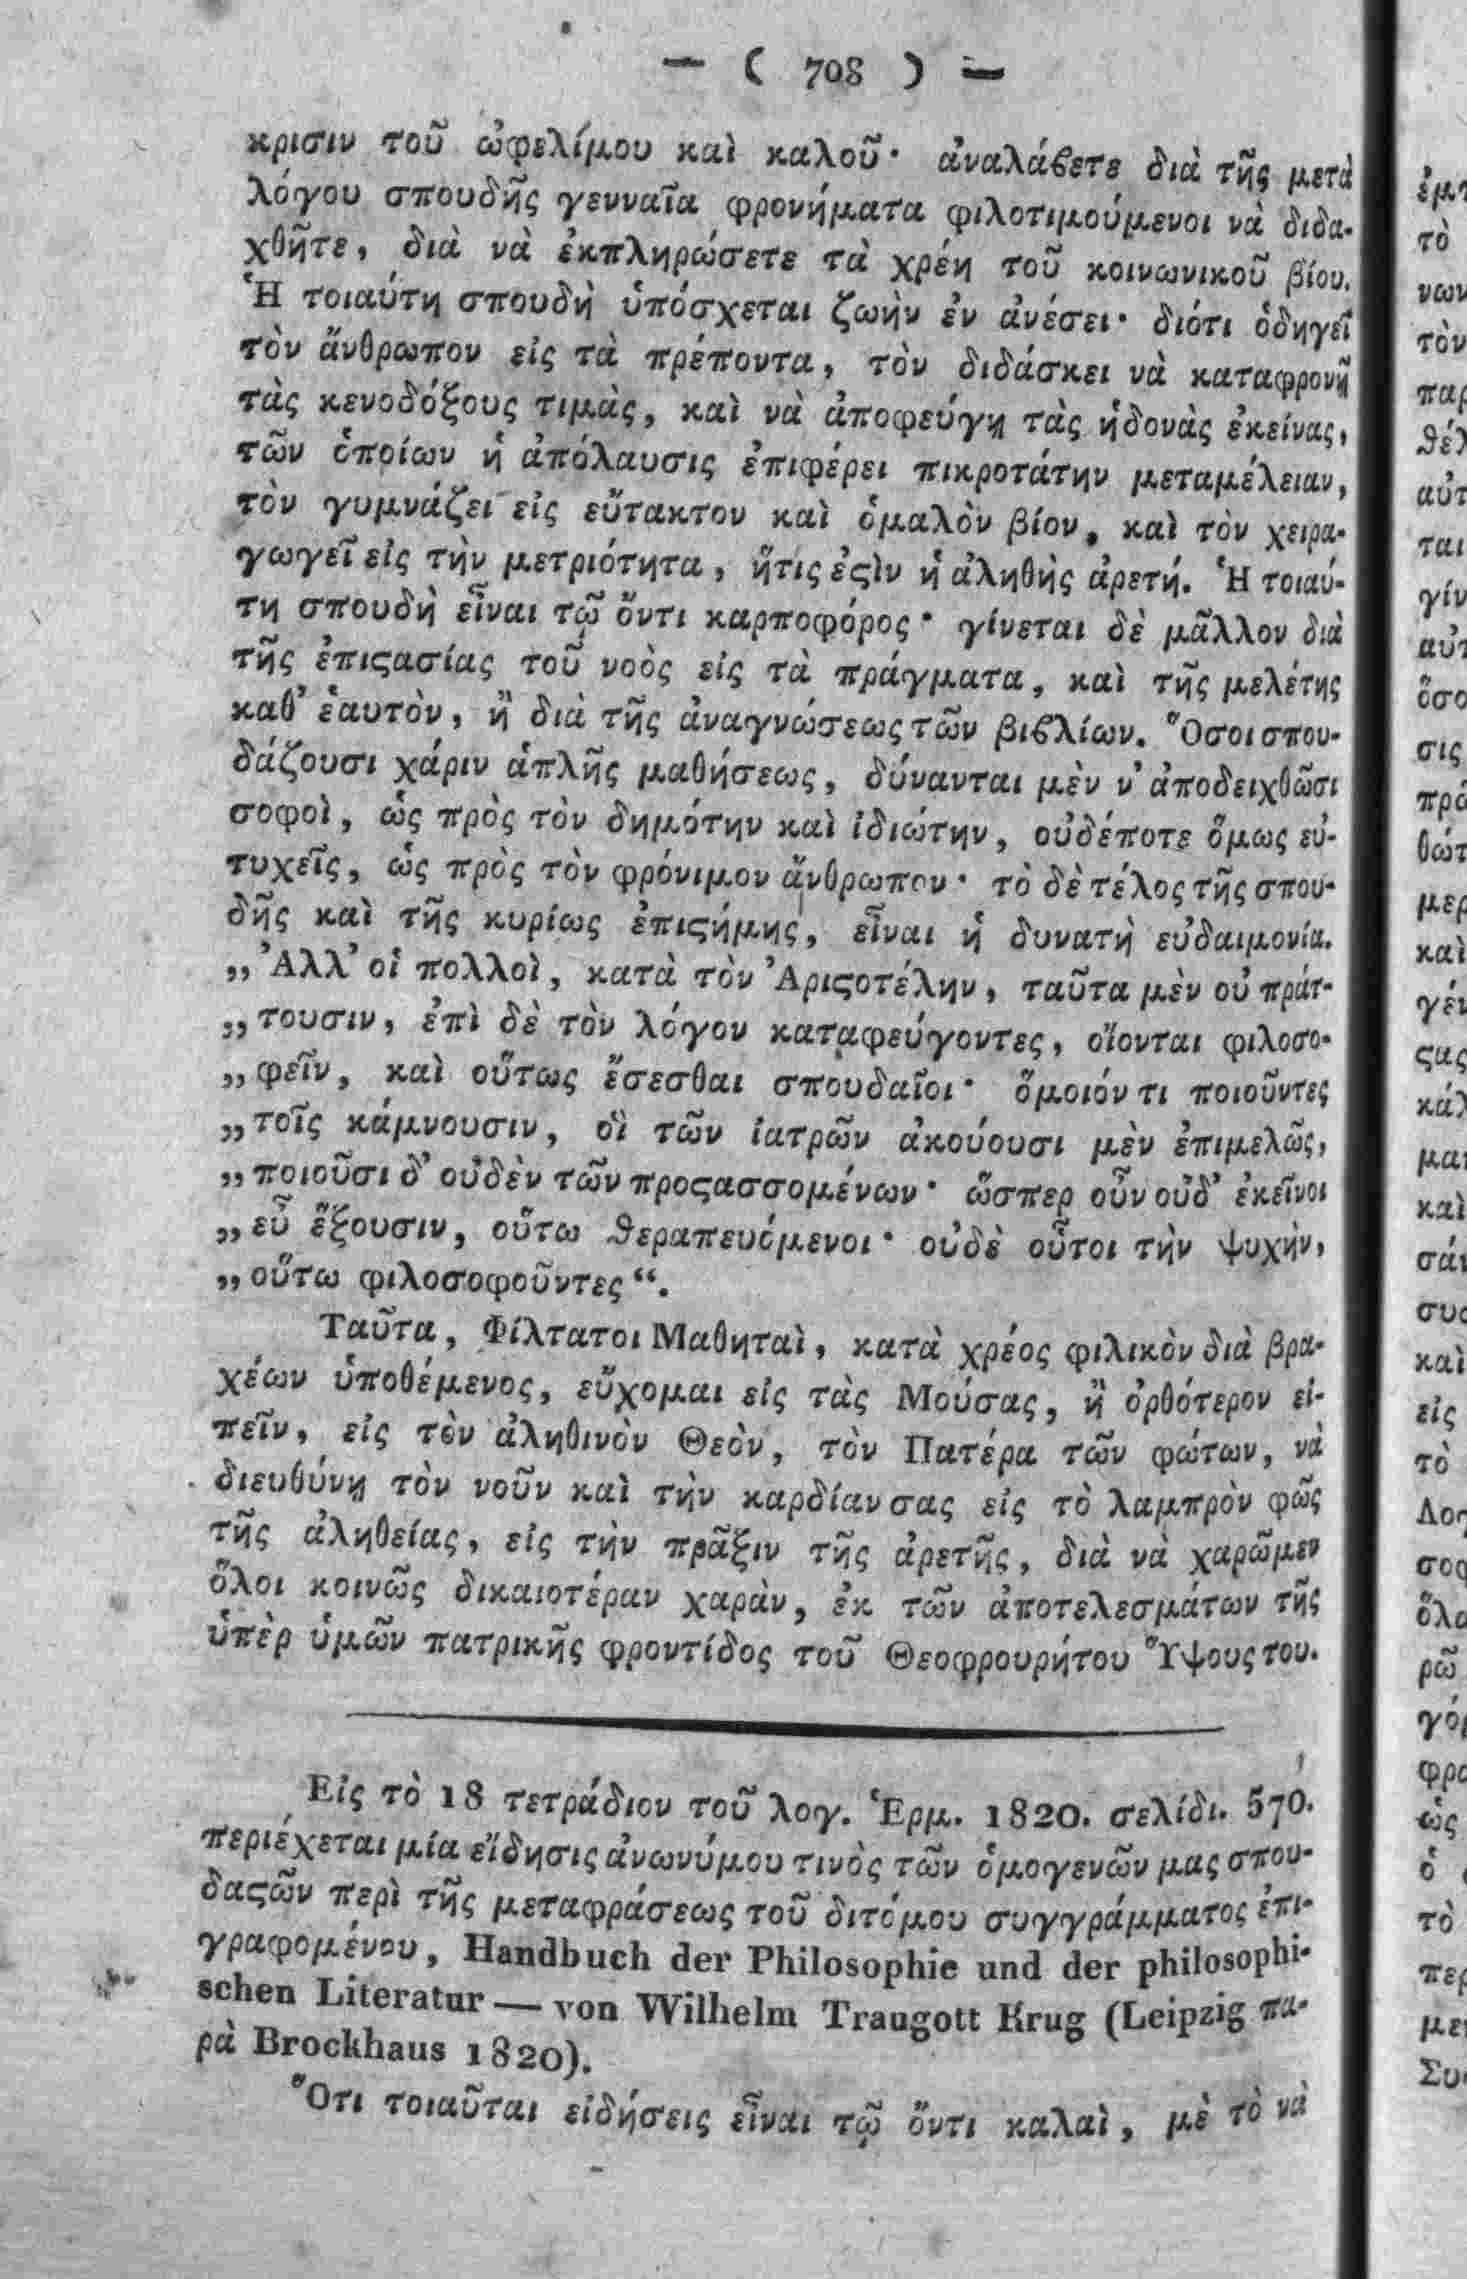 — ( 708 ) —
κρισιν τοῦ ὠφελίμου καὶ καλοῦ· ἀναλάβετε διὰ τῆς μετὰ
λόγου σπουδῆς γενναῖα φρονήματα φιλοτιμούμενοι νὰ διδα-
χθῆτε, διὰ νὰ ἐκπληρώσετε τὰ χρέη τοῦ κοινωνικοῦ βίου.
Ἡ τοιαύτη σπουδὴ ὑπόσχεται ζωὴν ἐν ἀνέσει· διότι ὁδηγεῖ
τὸν ἄνθρωπον εἰς τὰ πρέποντα, τὸν διδάσκει νὰ καταφρονῇ
τὰς κενοδόξους τιμὰς, καὶ νὰ ἀποφεύγῃ τὰς ἡδονὰς ἐκείνας,
τῶν ὁποίων ἡ ἀπόλαυσις ἐπιφέρει πικροτάτην μεταμέλειαν,
τὸν γυμνάζει εἰς εὔτακτον καὶ ὁμαλὸν βίον, καὶ τὸν χειρα-
γωγεῖ εἰς τὴν μετριότητα, ἥτις ἐϛὶν ἡ ἀληθὴς ἀρετή. Ἡ τοιαύ-
τη σπουδὴ εἶναι τῷ ὄντι καρποφόρος· γίνεται δὲ μᾶλλον διὰ
τῆς ἐπιϛασίας τοῦ νοὸς εἰς τὰ πράγματα, καὶ τῆς μελέτης
καθ' ἑαυτὸν, ἢ διὰ τῆς ἀναγνώσεως τῶν βιβλίων. Ὅσοι σπου-
δάζουσι χάριν ἁπλῆς μαθήσεως, δύνανται μὲν ν' ἀποδειχθῶσι
σοφοὶ, ὡς πρὸς τὸν δημότην καὶ ἰδιώτην, οὐδέποτε ὅμως εὐ-
τυχεῖς, ὡς πρὸς τὸν φρόνιμον ἄνθρωπον· τὸ δὲ τέλος τῆς σπου-
δῆς καὶ τῆς κυρίως ἐπιϛήμης, εἶναι ἡ δυνατὴ εὐδαιμονία.
„Ἀλλ' οἱ πολλοὶ, κατὰ τὸν Ἀριϛοτέλην, ταῦτα μὲν οὐ πράτ-
„τουσιν, ἐπὶ δὲ τὸν λόγον καταφεύγοντες, οἴονται φιλοσο-
„φεῖν, καὶ οὕτως ἔσεσθαι σπουδαῖοι· ὅμοιόν τι ποιοῦντες
„τοῖς κάμνουσιν, οἳ τῶν ἰατρῶν ἀκούουσι μὲν ἐπιμελῶς,
„ποιοῦσι δ' οὐδὲν τῶν προϛασσομένων· ὥσπερ οὖν οὐδ' ἐκεῖνοι
„εὖ ἕξουσιν, οὕτω θεραπευόμενοι· οὐδὲ οὗτοι τὴν ψυχὴν,
„οὕτω φιλοσοφοῦντες“.
Ταῦτα, Φίλτατοι Μαθηταὶ, κατὰ χρέος φιλικὸν διὰ βρα-
χέων ὑποθέμενος, εὔχομαι εἰς τὰς Μούσας, ἢ ὀρθότερον εἰ-
πεῖν, εἰς τὸν ἀληθινὸν Θεὸν, τὸν Πατέρα τῶν φώτων, νὰ
διευθύνῃ τὸν νοῦν καὶ τὴν καρδίαν σας εἰς τὸ λαμπρὸν φῶς
τῆς ἀληθείας, εἰς τὴν πρᾶξιν τῆς ἀρετῆς, διὰ νὰ χαρῶμεν
ὅλοι κοινῶς δικαιοτέραν χαρὰν, ἐκ τῶν ἀποτελεσμάτων τῆς
ὑπὲρ ὑμῶν πατρικῆς φροντίδος τοῦ Θεοφρουρήτου Ὕψους του.
Εἰς τὸ 18 τετράδιον τοῦ λογ. Ἑρμ. 1820. σελίδι. 570.
περιέχεται μία εἴδησις ἀνωνύμου τινὸς τῶν ὁμογενῶν μας σπου-
δαϛῶν περὶ τῆς μεταφράσεως τοῦ διτόμου συγγράμματος ἐπι-
γραφομένου, Handbuch der Philosophie und der philosophi-
schen Literatur — von Wilhelm Traugott Krug (Leipzig πα-
ρὰ Brockhaus 1820).
Ὅτι τοιαῦται εἰδήσεις εἶναι τῷ ὄντι καλαὶ, μὲ τὸ νὰ